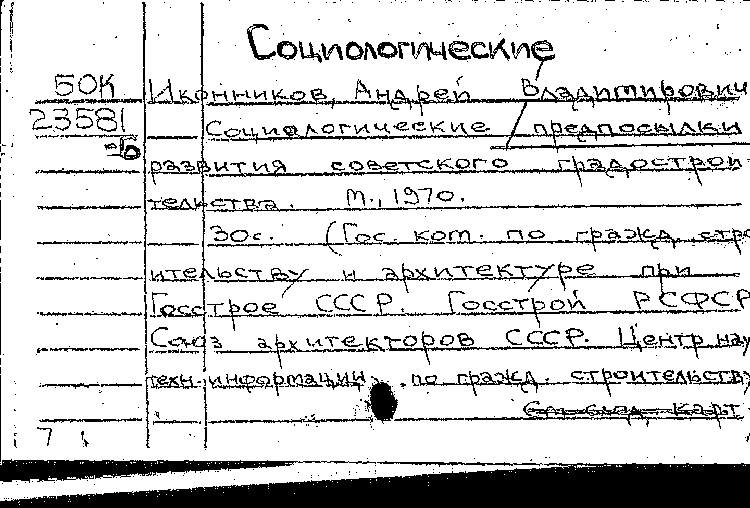 Социологические
50К Иконников, Андрей Владимирович
23581 Социологические предпосылки
-б развития советского градострои-
тельства. М., 1970.
30с. (Гос. ком. по гражд. стро
ительству и архитектуре при
Госстрое СССР. Госстрой РСФСР
Союз архитекторов СССР. Центр нау
техн. информации по гражд. строительству
карт
7